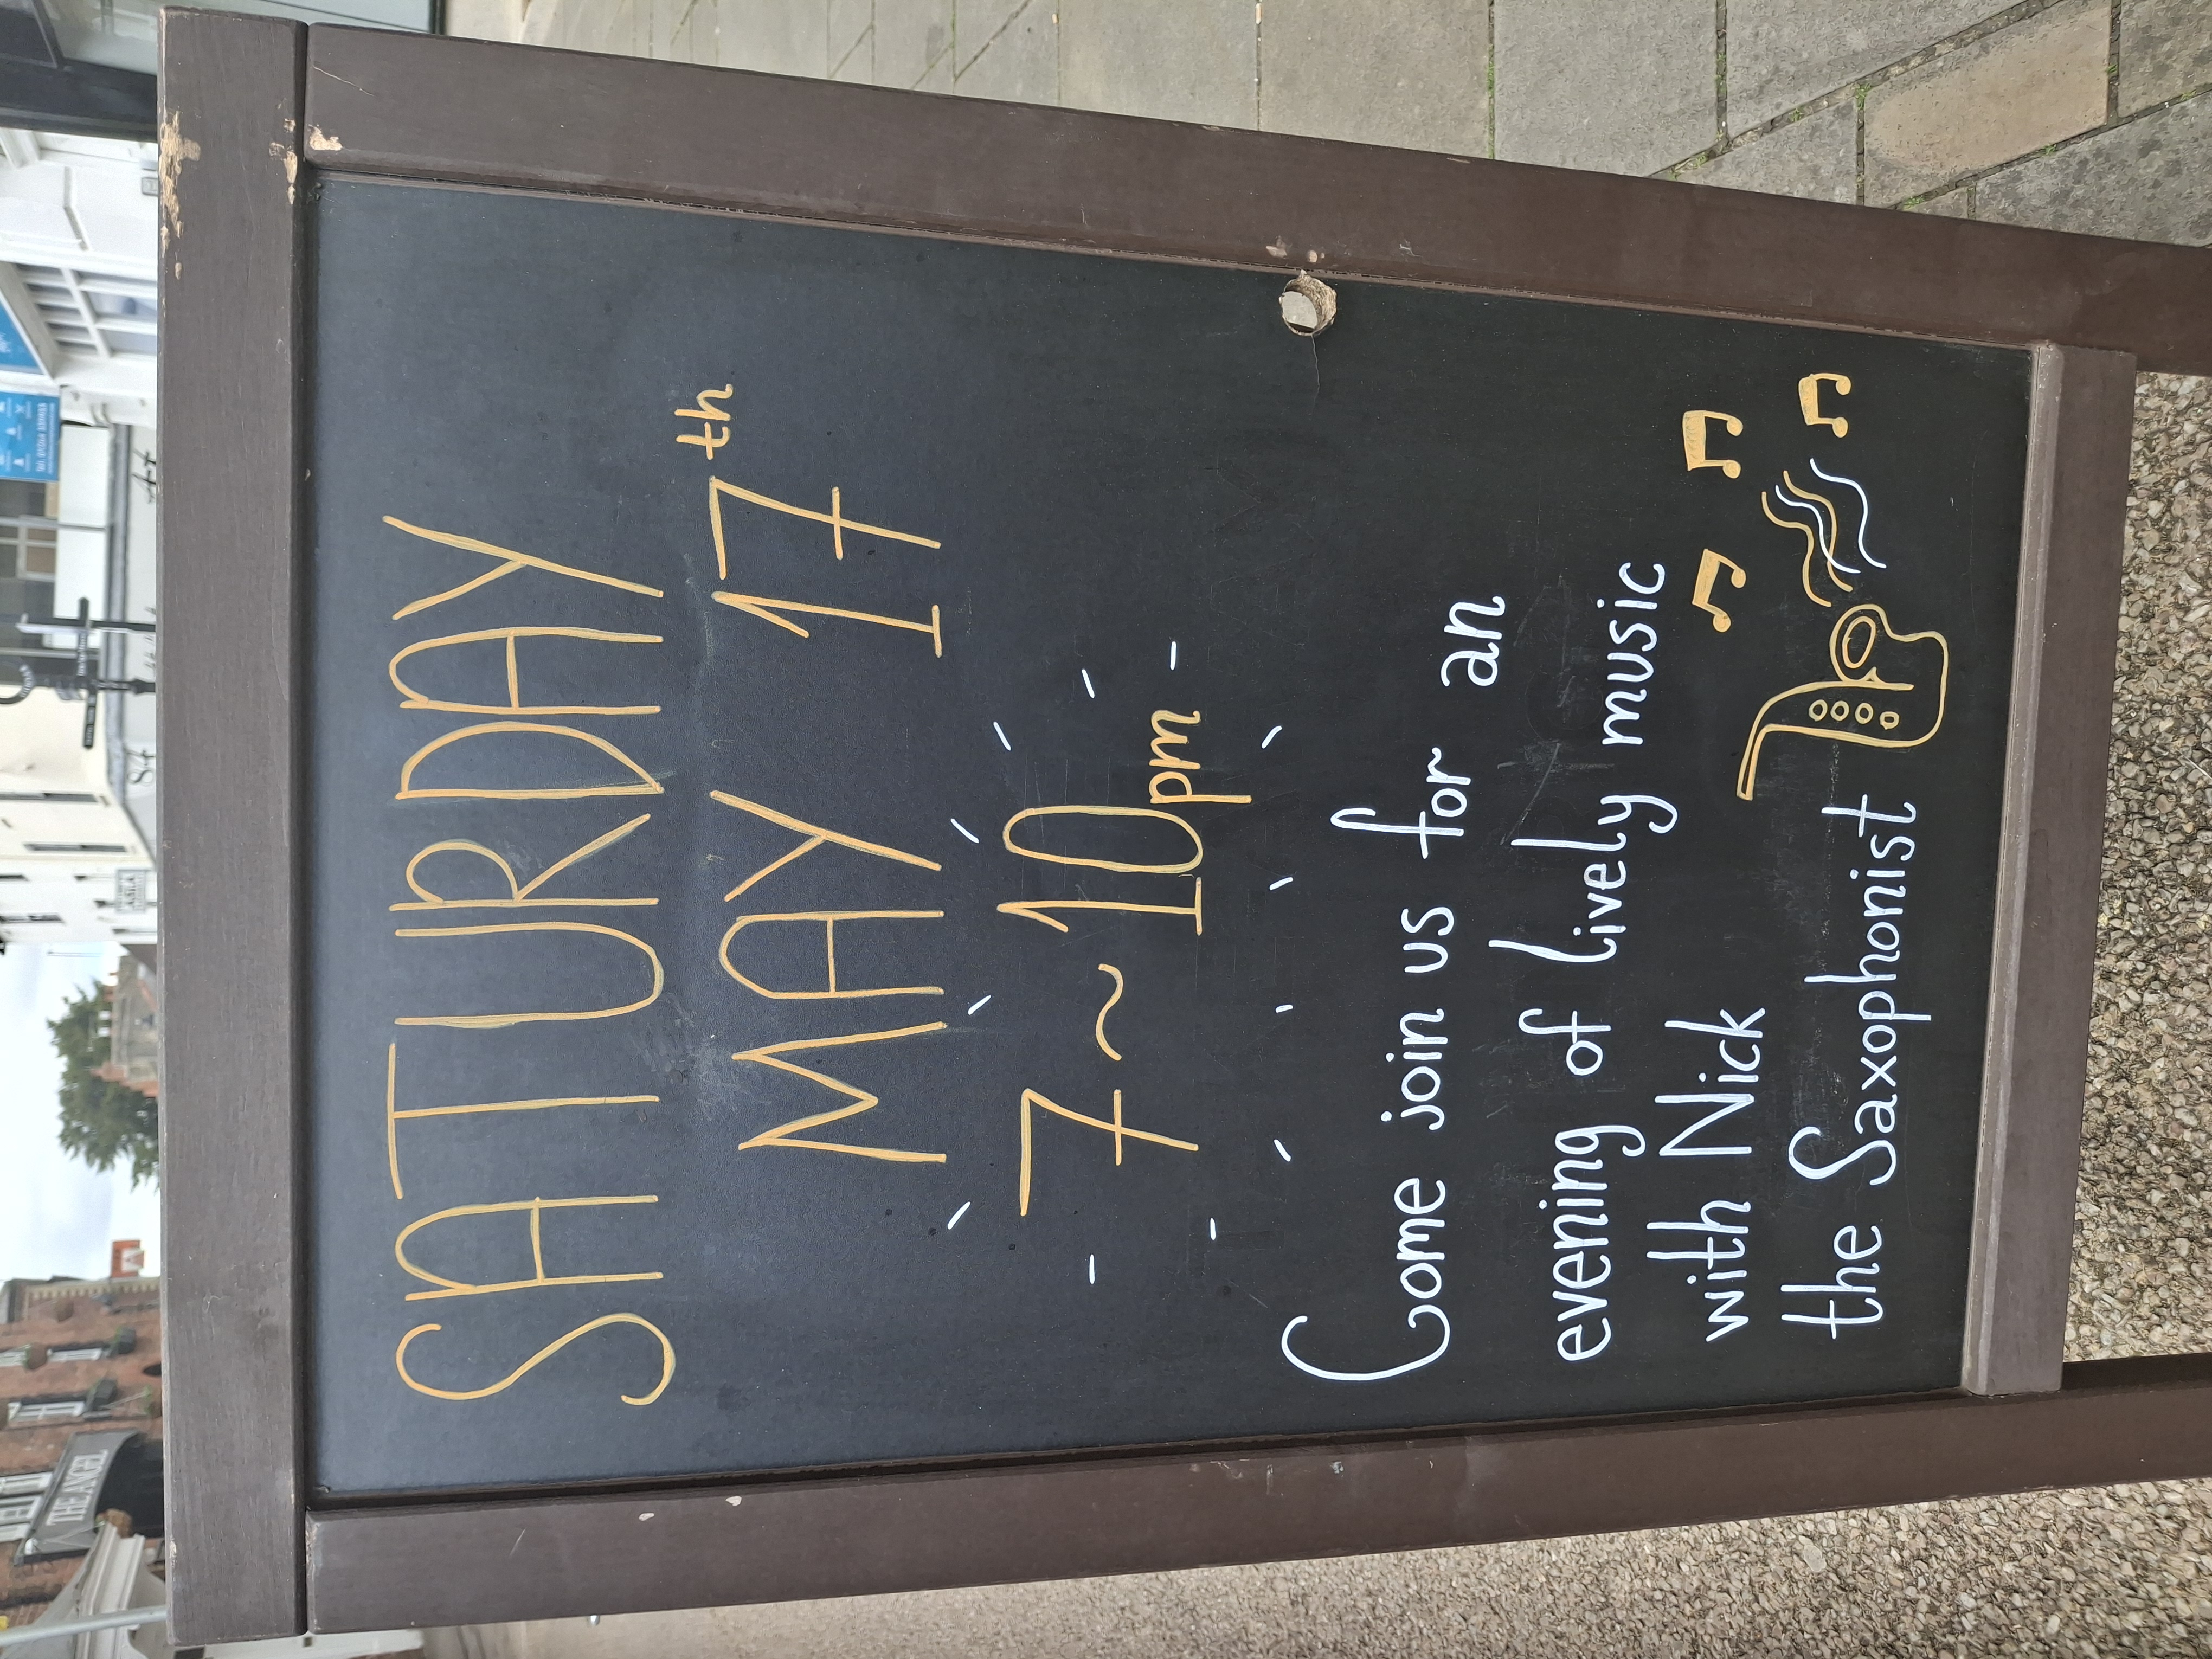 SATURDAY
MAY 17th
7~10pm
Come join us for an
evening of lively music
with Nick
the Saxophonist
THE ANGEL